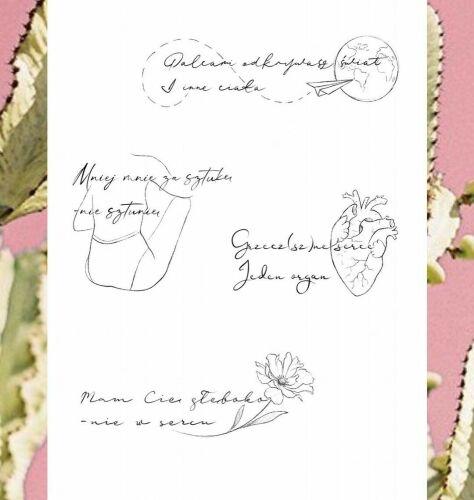 Palcami odkrywasz świat
I inne ciała
Mniej mnie za sztukę
-nie sztunię
Grzecz(sz)ne serce
Jeden organ
Mam Cię głęboko
-nie w sercu